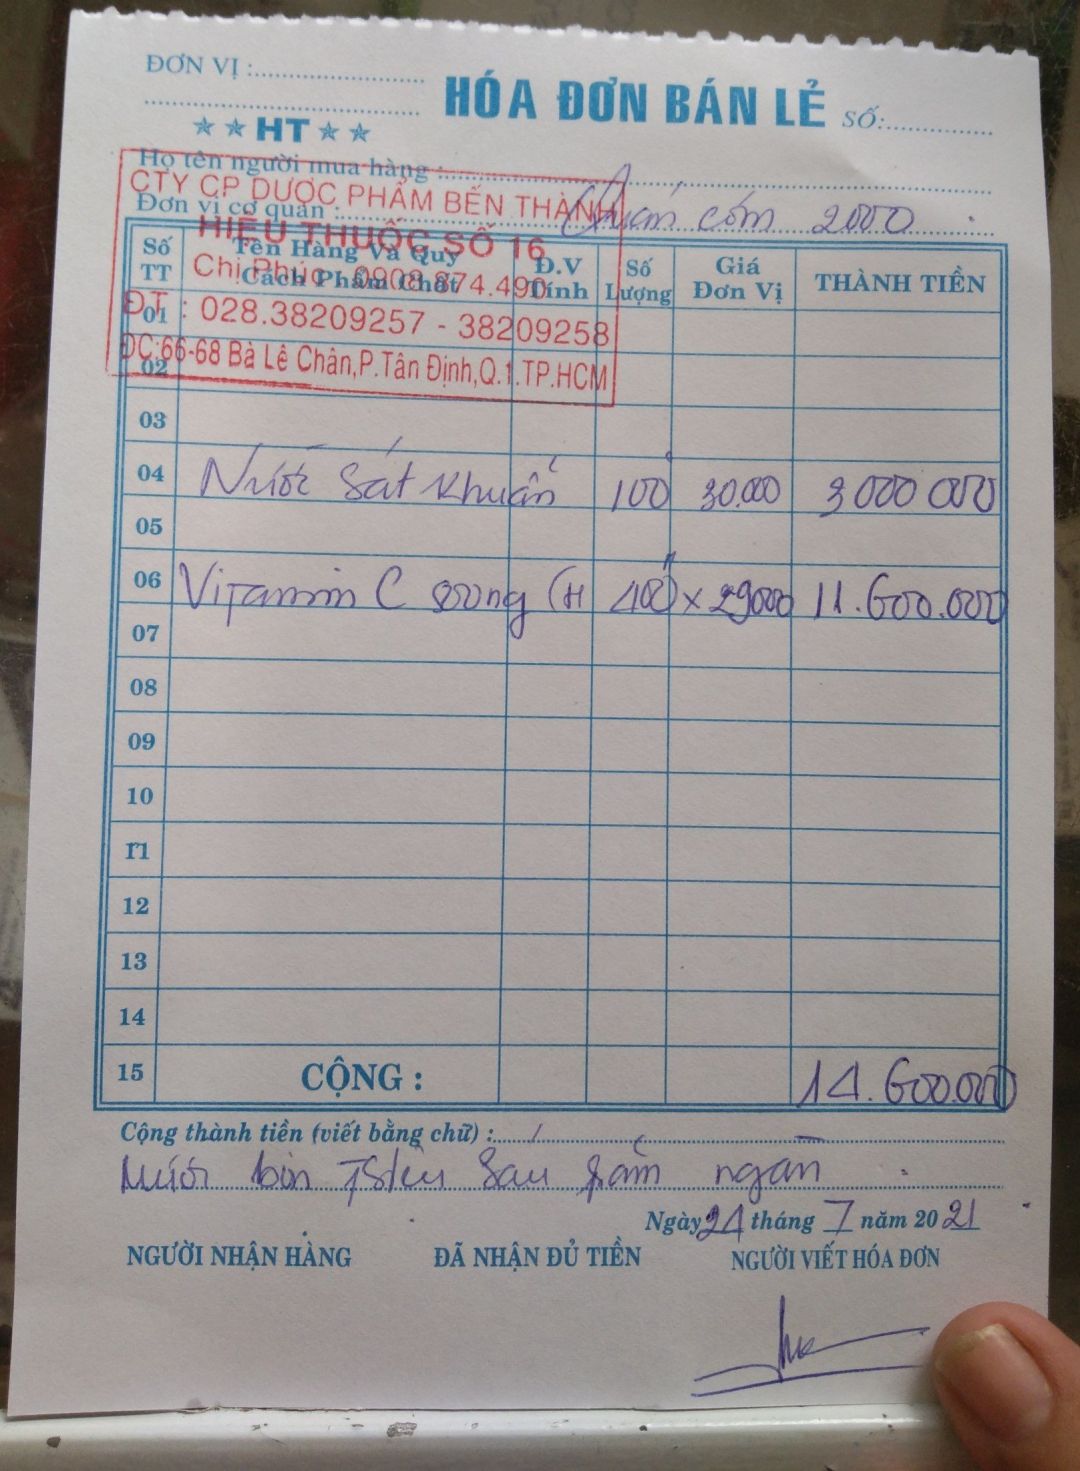 ĐƠN VỊ :
HÓA ĐƠN BÁN LẺ
SỐ:
HT
Họ tên người mua hàng :
CTY CP DƯỢC PHẨM BẾN THÀNH
Đơn vị cơ quan : Quán cơm 2000
HIỆU THUỐC SỐ 16
Số TT Tên Hàng Và Quy Cách Phẩm Chất Đ.V Tính Số Lượng Giá Đơn Vị THÀNH TIỀN
Chị Phúc 0908.874.490
ĐT : 028.38209257 - 38209258
ĐC:66-68 Bà Lê Chân,P.Tân Định,Q.1.TP.HCM
01
02
03
04 Nước Sát khuẩn 100 30.000 3 000 000
05
06 Vitamin C sương (H 400 x 29000 11.600.000
07
08
09
10
11
12
13
14
15 CỘNG : 14.600.000
Cộng thành tiền (viết bằng chữ) :
Mười bốn Triệu Sáu trăm ngàn
Ngày 24 tháng 7 năm 2021
NGƯỜI NHẬN HÀNG ĐÃ NHẬN ĐỦ TIỀN NGƯỜI VIẾT HÓA ĐƠN